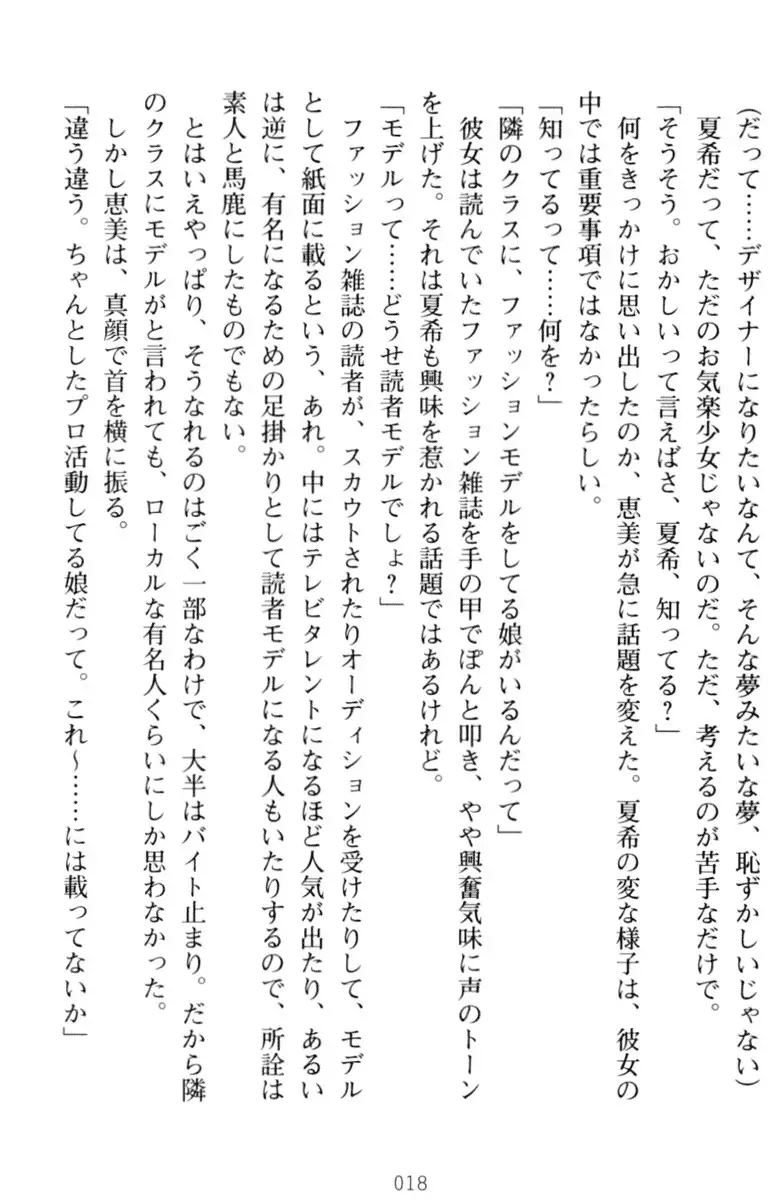 (だって……デザイナーになりたいなんて、そんな夢みたいな夢、恥ずかしいじゃない)
夏希だって、ただのお気楽少女じゃないのだ。ただ、考えるのが苦手なだけで。
「そうそう。おかしいって言えばさ、夏希、知ってる？」
何をきっかけに思い出したのか、恵美が急に話題を変えた。夏希の変な様子は、彼女の
中では重要事項ではなかったらしい。
「知ってるって……何を？」
「隣のクラスに、ファッションモデルをしてる娘がいるんだって」
彼女は読んでいたファッション雑誌を手の甲でぽんと叩き、やや興奮気味に声のトーン
を上げた。それは夏希も興味を惹かれる話題ではあるけれど。
「モデルって……どうせ読者モデルでしょ？」
ファッション雑誌の読者が、スカウトされたりオーディションを受けたりして、モデル
として紙面に載るという、あれ。中にはテレビタレントになるほど人気が出たり、あるい
は逆に、有名になるための足掛かりとして読者モデルになる人もいたりするので、所詮は
素人と馬鹿にしたものでもない。
とはいえやっぱり、そうなれるのはごく一部なわけで、大半はバイト止まり。だから隣
のクラスにモデルがと言われても、ローカルな有名人くらいにしか思わなかった。
しかし恵美は、真顔で首を横に振る。
「違う違う。ちゃんとしたプロ活動してる娘だって。これ〜……には載ってないか」
018